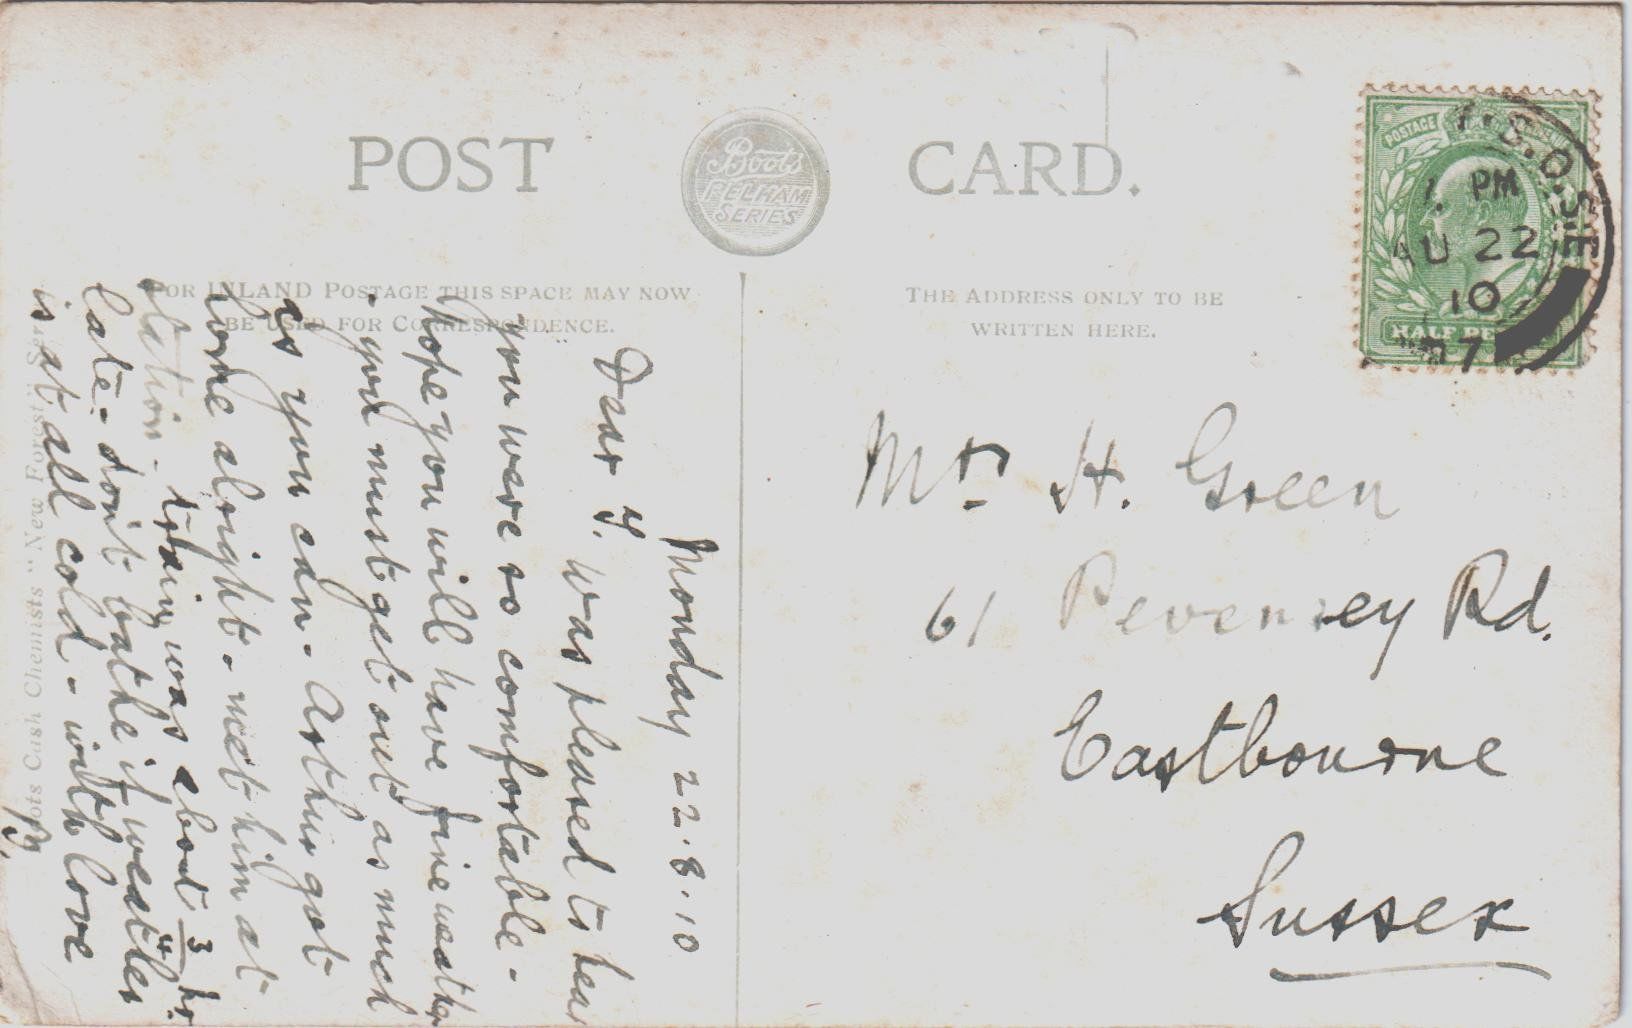 POST CARD.
Boots
PELHAM
SERIES
FOR INLAND POSTAGE THIS SPACE MAY NOW
BE USED FOR CORRESPONDENCE.
THE ADDRESS ONLY TO BE
WRITTEN HERE.
POSTAGE
HALF
S.O.S.E
1. PM
AU 22
10
Monday 22.8.10
Dear
Was pleased to hear
you were so comfortable -
Hope you will have fine weather
- you must get out as much
as you can - Arthur got
home alright - met him at
station - train was about 3/4 hr.
late - don't bathe if weather
is at all cold - with love
Boots Cash Chemists "New Forest" Series
Mrs H. Green
61 Pevensey Rd.
Eastbourne
Sussex